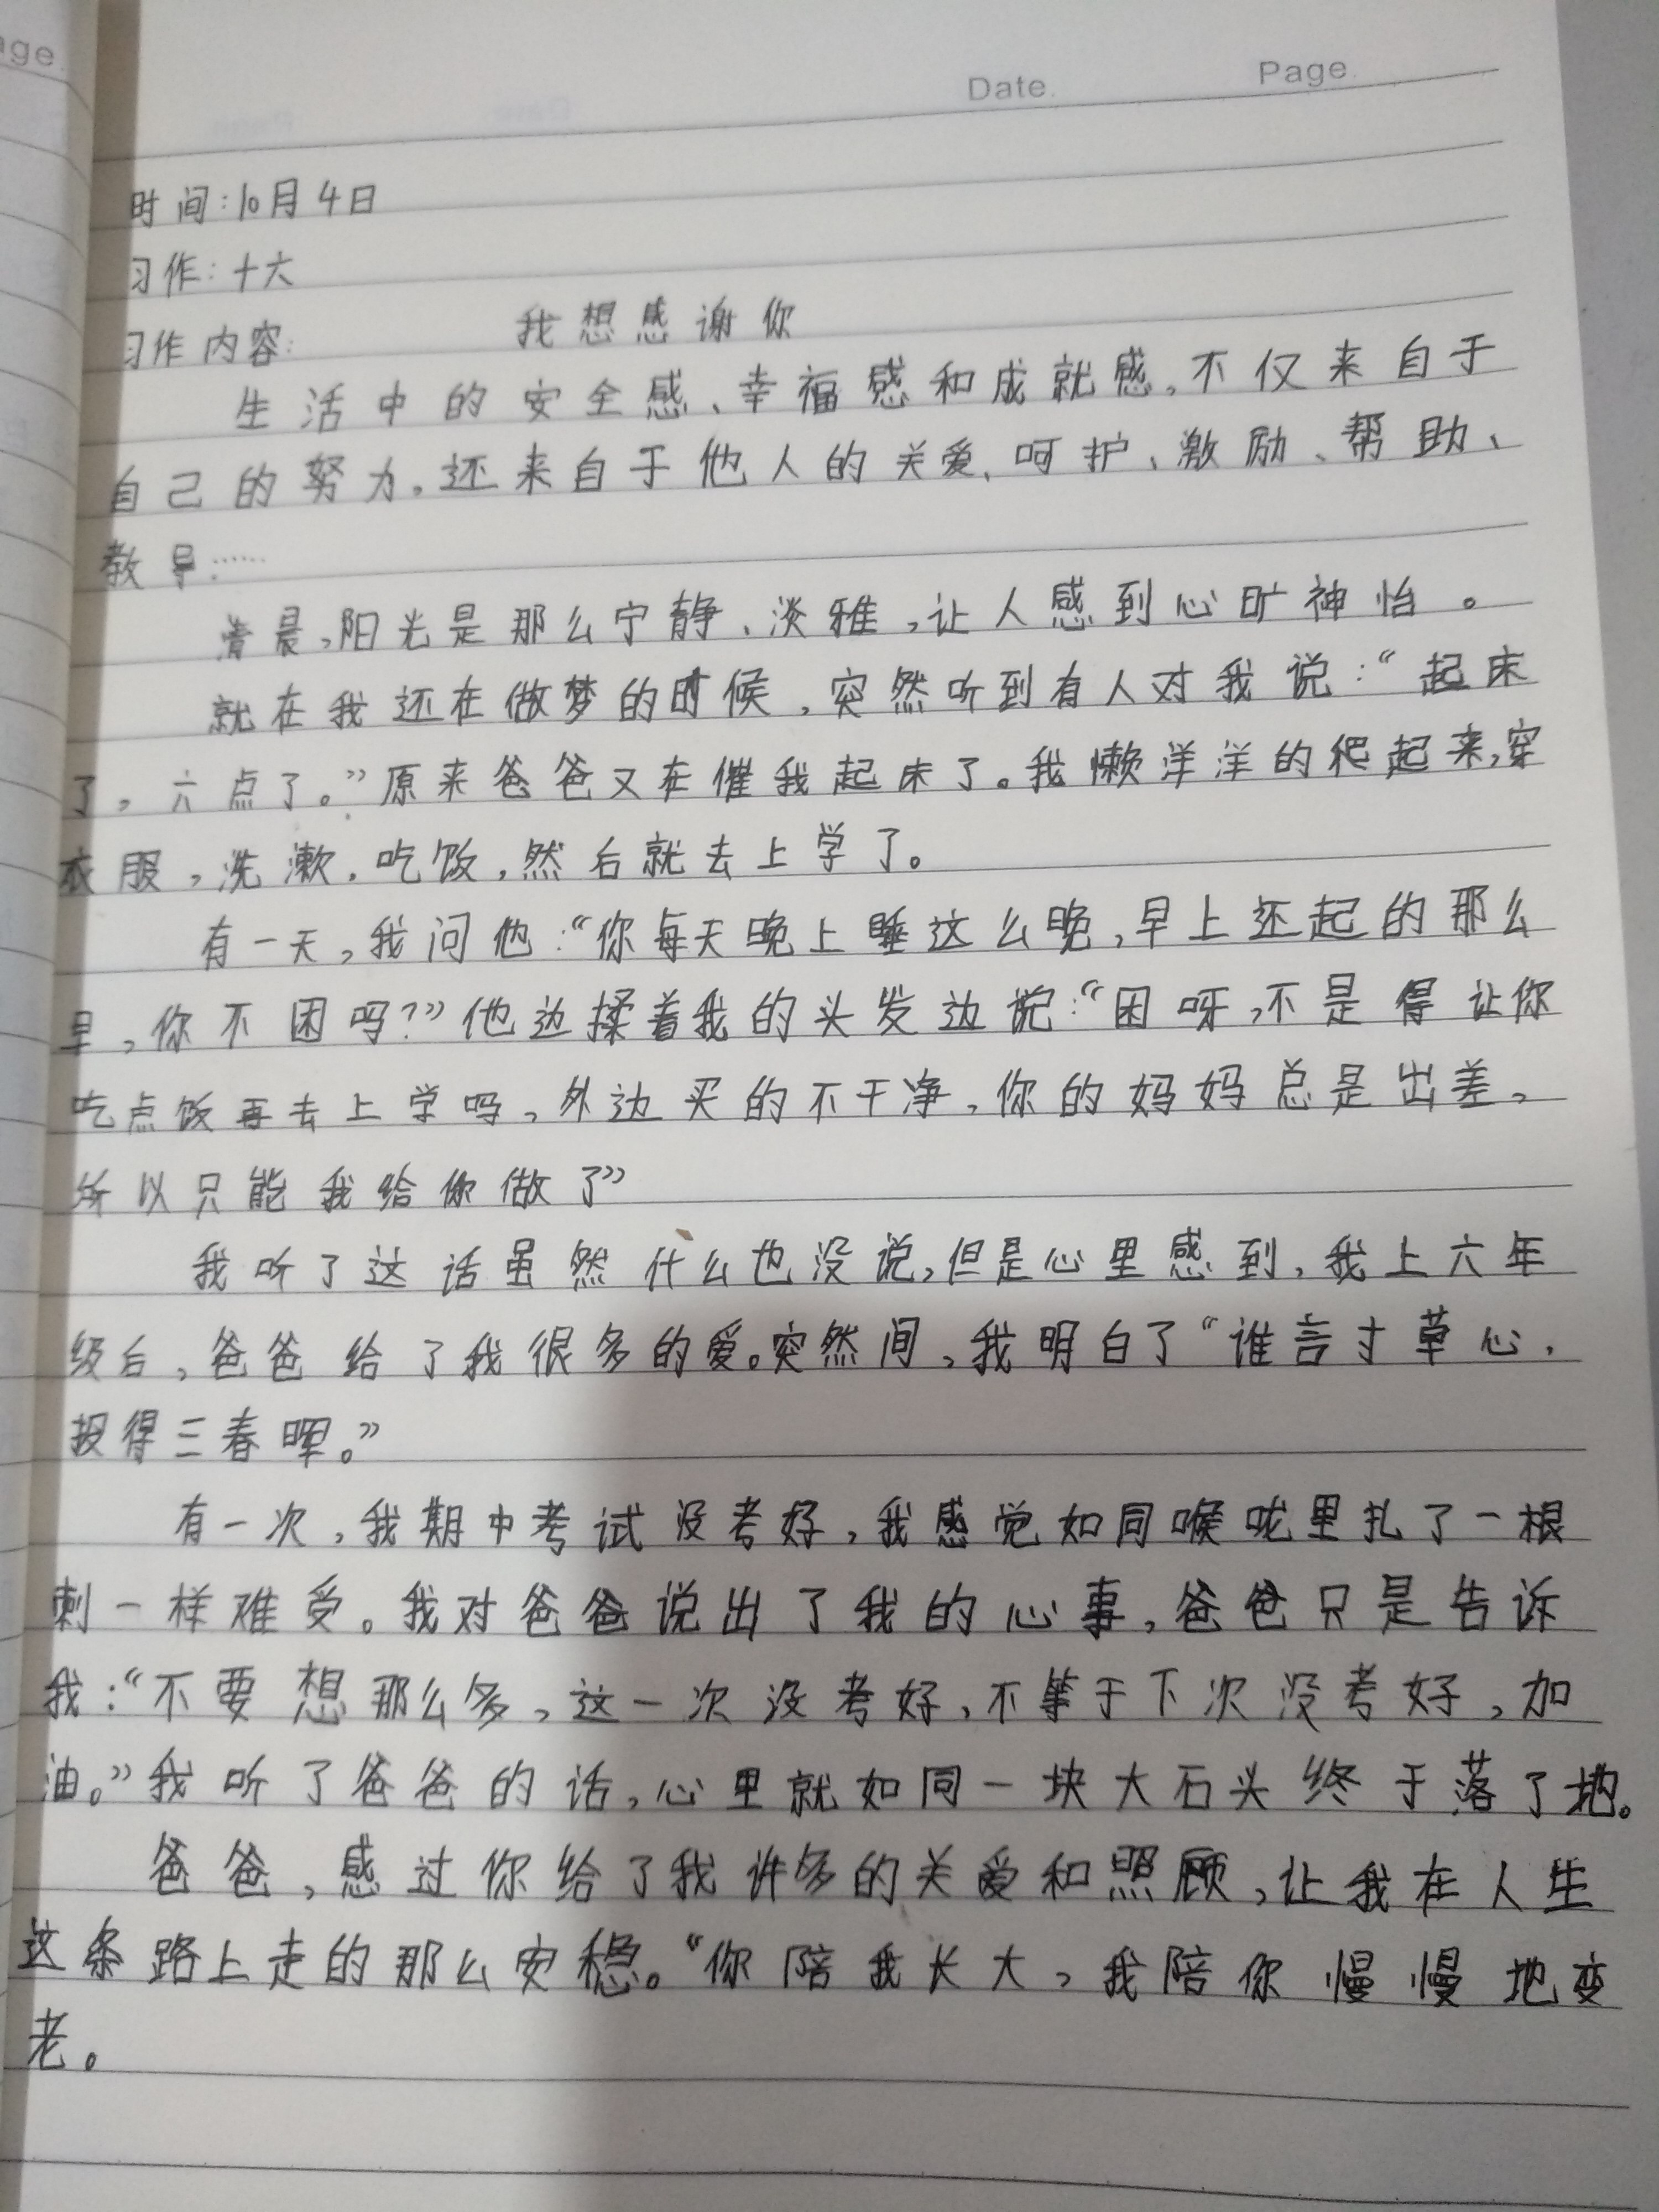 age.
Date. Page.
时间:10月4日
习作:十六
习作内容: 我想感谢你
生活中的安全感、幸福感和成就感,不仅来自于
自己的努力,还来自于他人的关爱、呵护、激励、帮助、
教导……
清晨,阳光是那么宁静、淡雅,让人感到心旷神怡。
就在我还在做梦的时候,突然听到有人对我说:“起床
了,六点了。”原来爸爸又在催我起床了。我懒洋洋的爬起来,穿
衣服,洗漱,吃饭,然后就去上学了。
有一天,我问他:“你每天晚上睡这么晚,早上还起的那么
早,你不困吗?”他边揉着我的头发边说:“困呀,不是得让你
吃点饭再去上学吗,外边买的不干净,你的妈妈总是出差,
所以只能我给你做了”
我听了这话虽然什么也没说,但是心里感到,我上六年
级后,爸爸给了我很多的爱。突然间,我明白了“谁言寸草心,
报得三春晖。”
有一次,我期中考试没考好,我感觉如同喉咙里扎了一根
刺一样难受。我对爸爸说出了我的心事,爸爸只是告诉
我:“不要想那么多,这一次没考好,不等于下次没考好,加
油。”我听了爸爸的话,心里就如同一块大石头终于落了地。
爸爸,感过你给了我许多的关爱和照顾,让我在人生
这条路上走的那么安稳。“你陪我长大,我陪你慢慢地变
老。